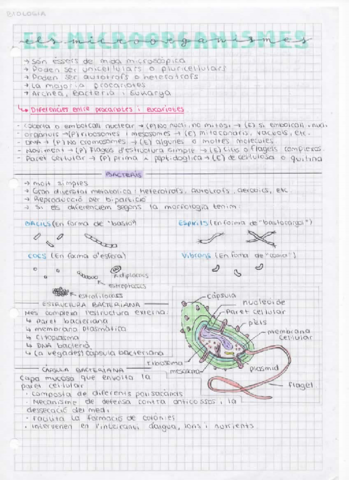 BIOLOGIA
ELS MICROORGANISMES
→ Són éssers de mida microscòpica
→ Poden ser unicel·lulars o pluricel·lulars
→ Poden ser autòtrofs o heteròtrofs
→ La major: a procariotes
→ Archea, Bacteria i Eukarya
↳ Diferències entre procariotes i eucariotes
nuclear → (P) no nucli, no mitosi → (E) si embolcall nucl.
→ (P) ribosomes i mesosomes → (E) mitocondris, vacúols, etc.
(E) algunes o moltes molècules
(P) flagels estructura simple → (E) cilis o flagels complexos
Paret cel·lular → (P) prima → (E) de cel·lulosa o quitina
BACTERIS
→ molt simples
→ Gran diversitat metabòlica: heteròtrofs, autòtrofs, aerobis, etc
→ Reproducció per bipartició
→ Si es diferencien segons la morfologia tenim
BACILS (en forma de "bastó")
Espirils (en forma de
COCS (en forma d'esfera)
Vibrions (en forma de "coma")
diplococs
estreptococs
estafilococs
ESTRUCTURA BACTERIANA
Més complexa estructura externa
↳ Paret bacteriana
↳ membrana plasmàtica
↳ Citoplasma
↳ DNA bacterià
↳ (a vegades) càpsula bacteriana
càpsula
nucleoide
paret cel·lular
pilis
membrana cel·lular
plasmid
flagel
ribosoma
mesosoma
CÀPSULA BACTERIANA
Capa mucosa que envolta la
paret cel·lular
- Composta de diferents polisacàrids
- Mecanisme de defensa contra anticossos i la
dessecació del medi
- Facilita la formació de colònies
- Intervenen en l'intercanvi d'aigua, ions i nutrients